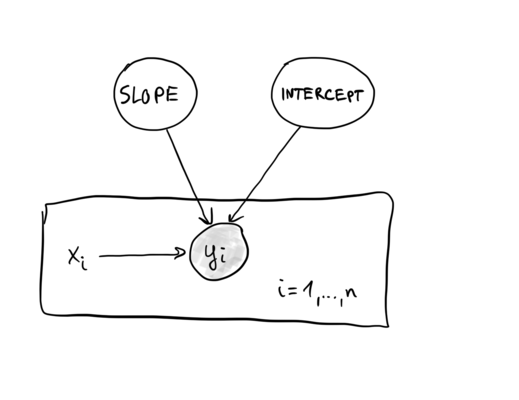 SLOPE
INTERCEPT
xi
yi
i=1,...,n